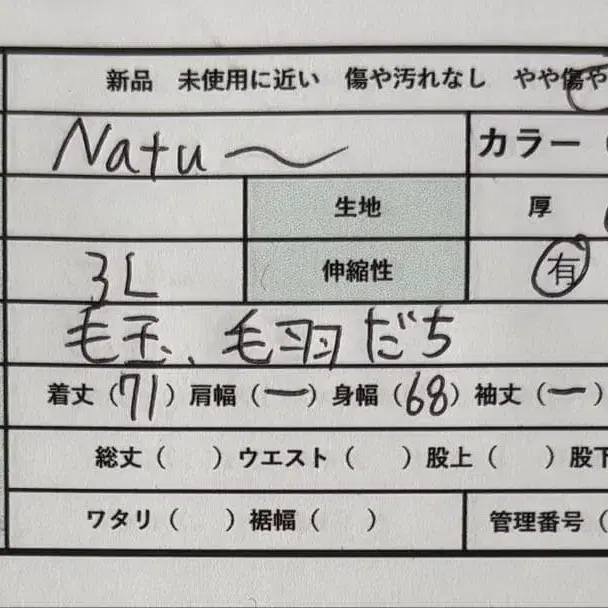 新品 未使用に近い 傷や汚れなし やや傷や
Natu〜 カラー（
生地 厚
3L 伸縮性 有
毛玉、毛羽だち
着丈（71）肩幅（ー）身幅（68）袖丈（ー）
総丈（ ）ウエスト（ ）股上（ ）股下
ワタリ（ ）裾幅（ ） 管理番号（